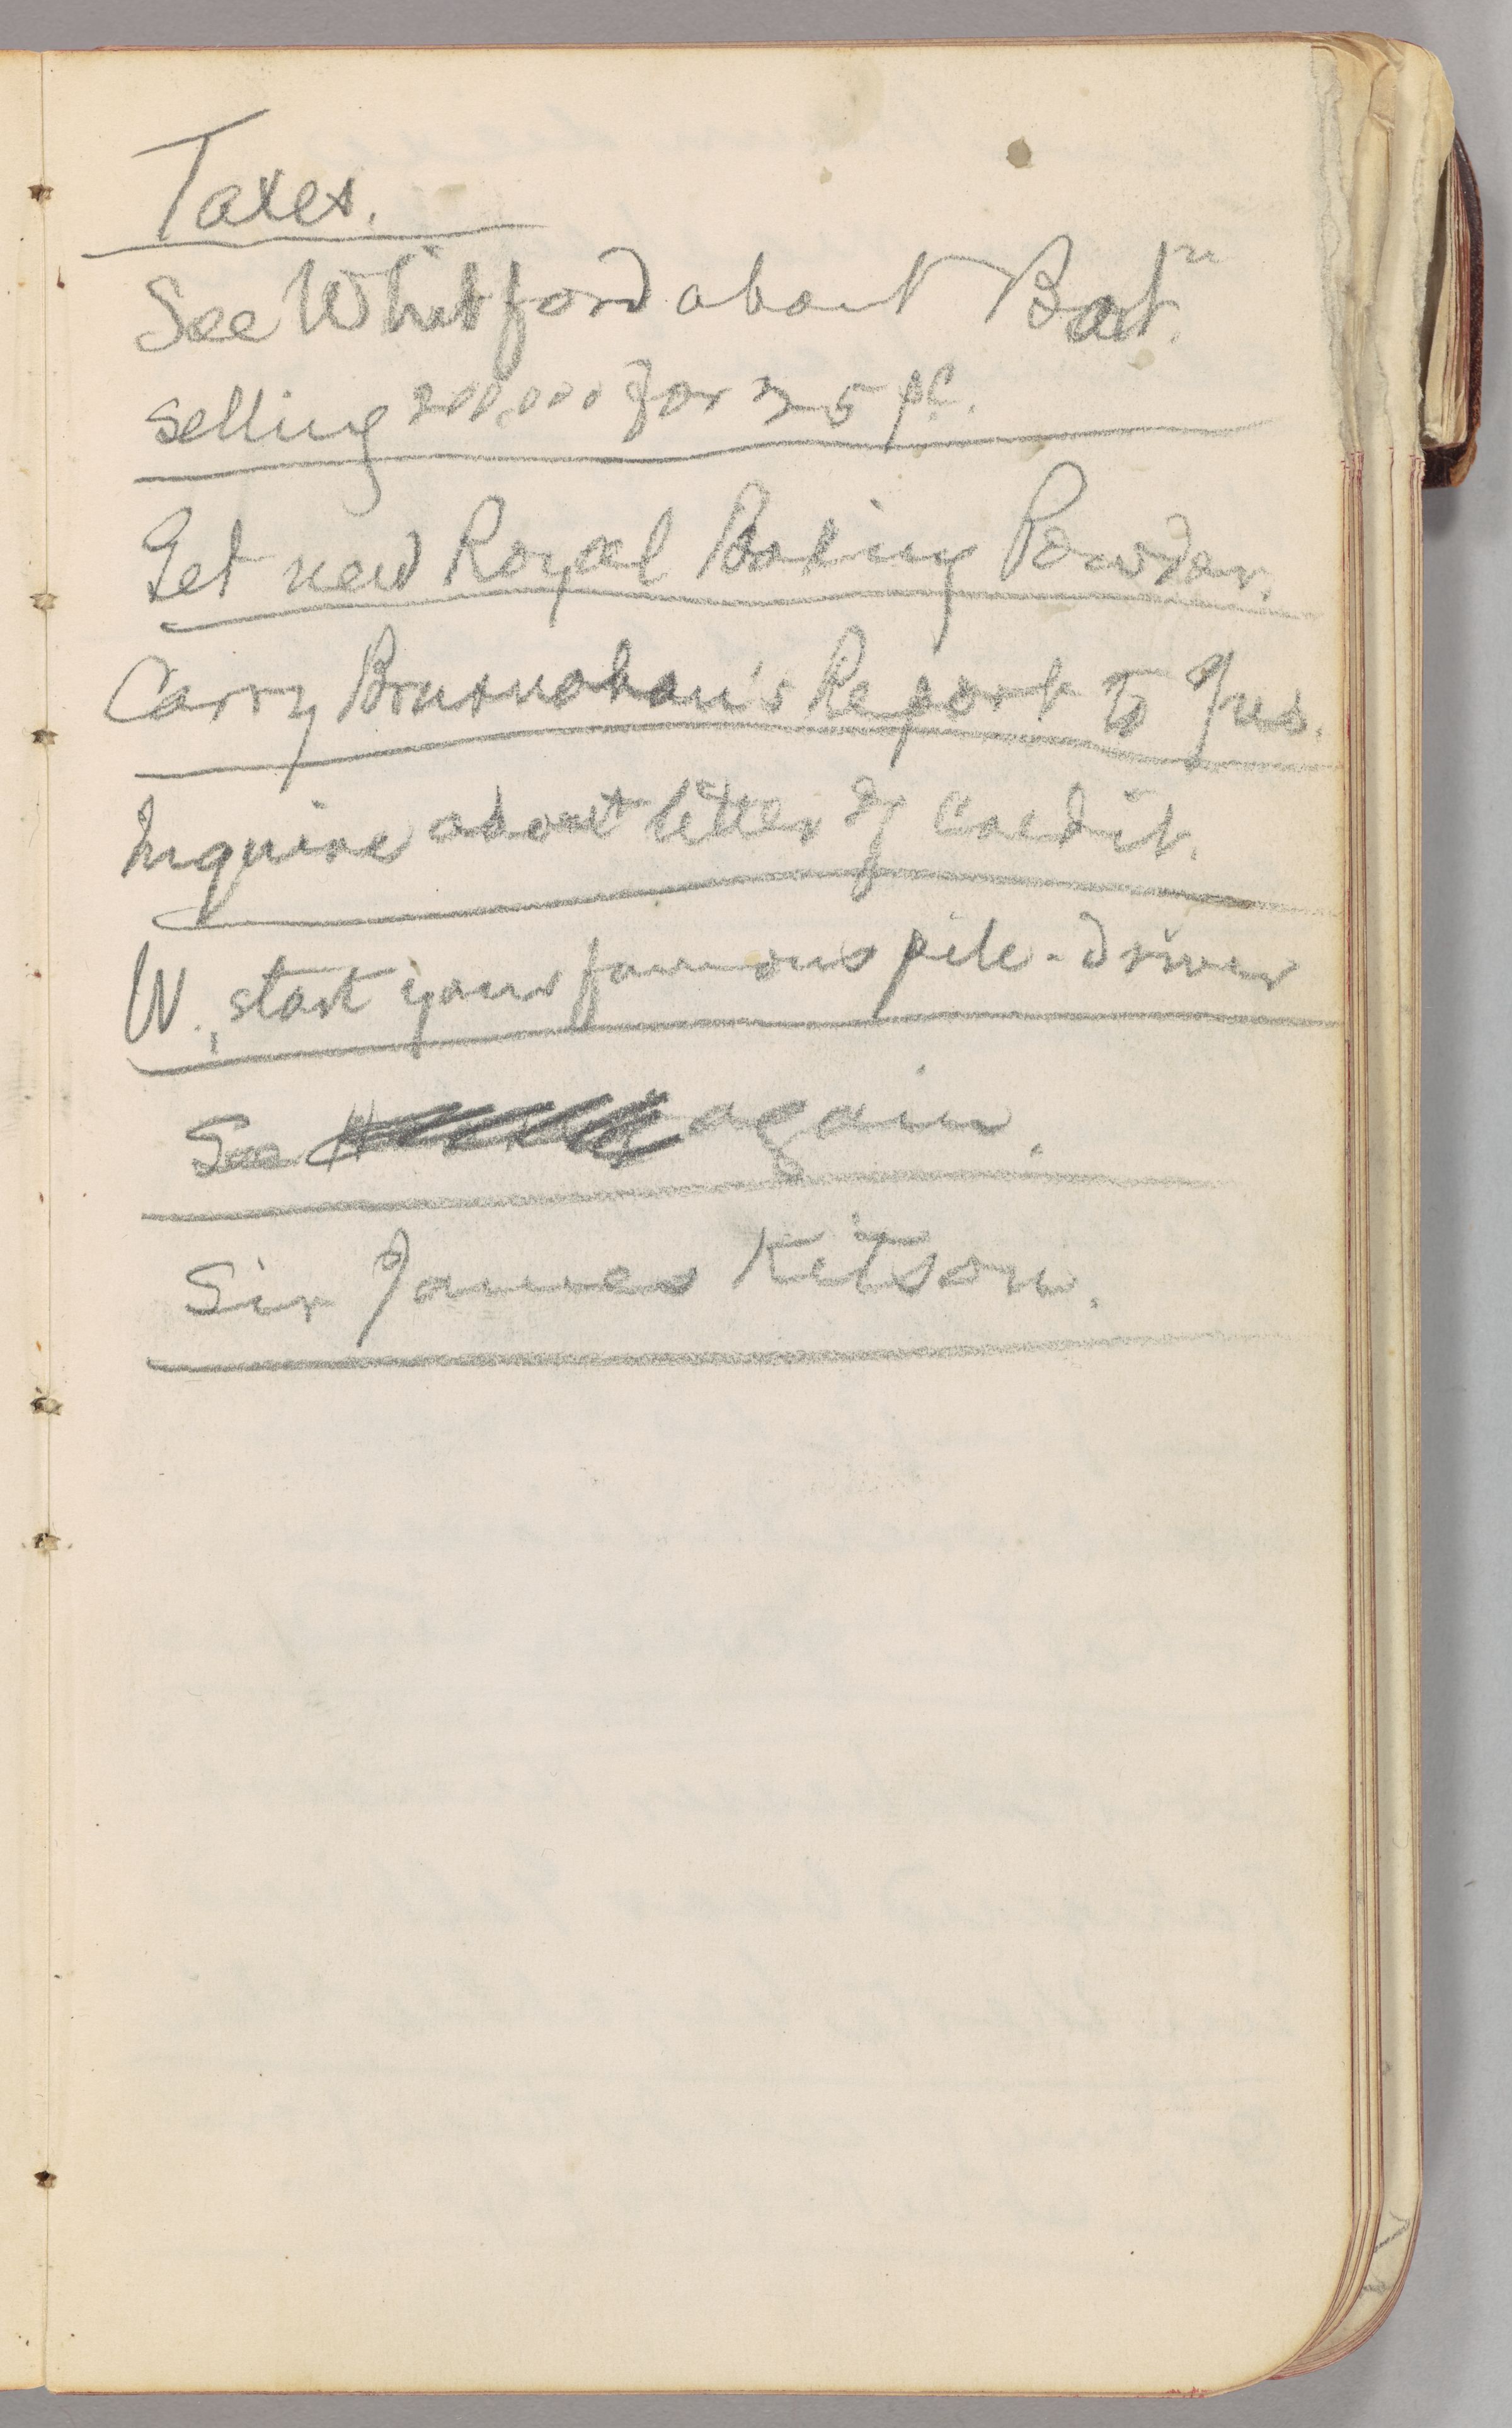 Taxes.
See Whitford about Bat.
selling 200,000 for 25 pc.
Get new Royal Baking Powder.
Carry Brusnahan's Report to Jno.
Inquire about letter of credit.
W., start your famous pile-driver
See again.
Sir James Kitson.